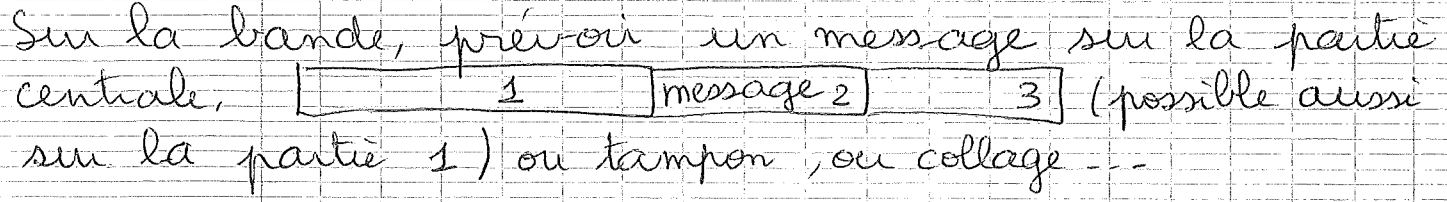 Sur la bande, prévoir un message sur la partie
centrale, 1 message 2 3 (possible aussi
sur la partie 1) ou tampon, ou collage ---